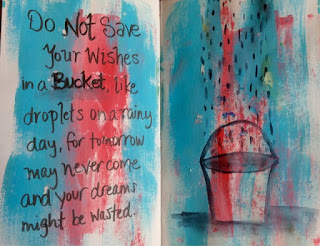 Do Not Save
Your Wishes
in a Bucket, like
droplets on a rainy
day, for tomorrow
may never come
and your dreams
might be wasted.